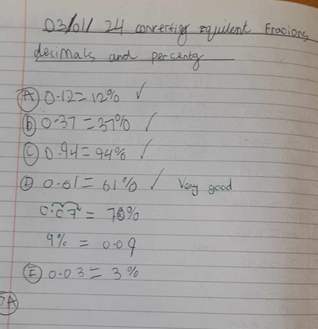 03/01/24 connecting equilent Fractions,
decimals and percentg
A 0.12 = 12% ✓
b 0.37 = 37% ✓
C 0.94 = 94% ✓
D 0.61 = 61% ✓ Very good
= 70%
9% = 0.09
E 0.03 = 3%